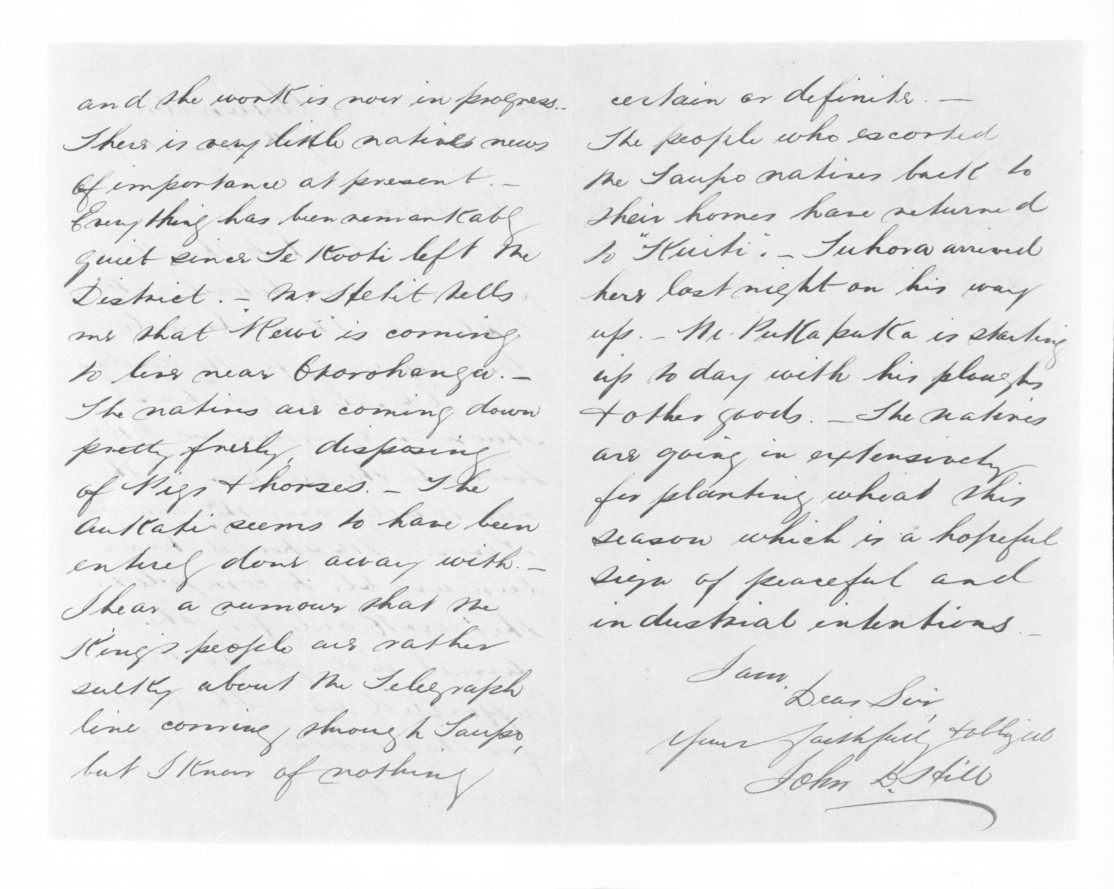 and the work is now in progress.-
There is very little native news
of importance at present. -
Everything has been remarkably
quiet since Te Kooti left the
District. - Mr Hetit tells
me that "Rewi" is coming
to live near Otorohanga. -
The natives are coming down
pretty freely, disposing
of Pigs & horses. - The
Aukati seems to have been
entirely done away with. -
I hear a rumour that the
King's people are rather
sulky about the Telegraph
line coming through Taupo,
but I know of nothing
certain or definite. -
The people who escorted
the Taupo natives back to
their homes have returned
to "Kuiti". - Tuhora arrived
here last night on his way
up. - Te Pukapuka is starting
up to day with his ploughs
& other goods. - The natives
are going in extensively
for planting wheat this
season which is a hopeful
sign of peaceful and
industrial intentions. -
I am,
Dear Sir,
Yours faithfully & obliged
John B. Hill